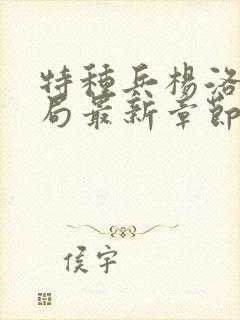 特種兵楊洛
局最新章節
侯宇